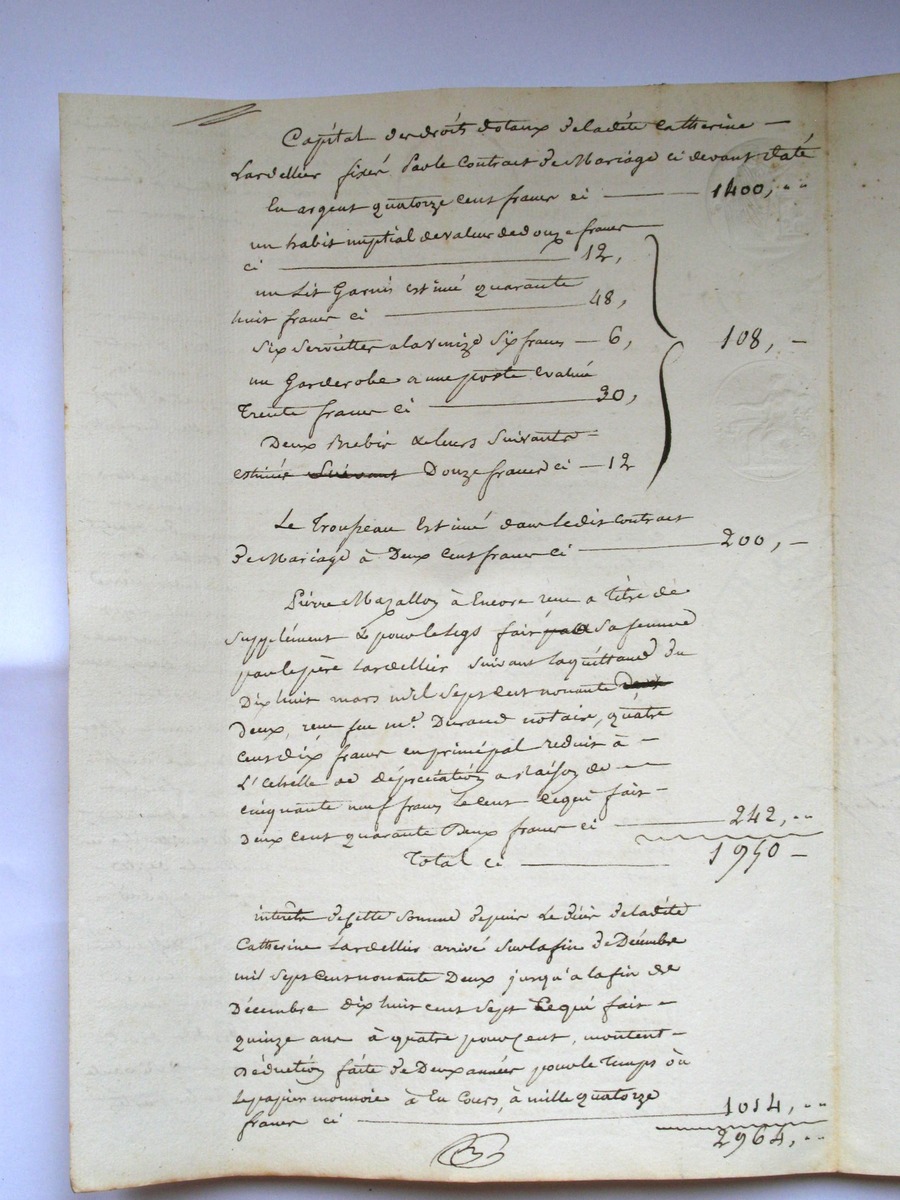 Capital des droits dotaux de ladite Catherine —
Lardellier fixés par le Contract de Mariage ci devant daté
En argent quatorze cent francs ci — 1400, "
un habit nuptial de valeur de douze francs
ci — 12,
un Lit Garnis estimé quarante
huit francs ci — 48,
Six Serviettes a la venize Six francs — 6,
un Garderobe a une porte Evalué
Trente francs ci — 30,
108, —
Deux Brebis & leurs Suivants —
estimés Suivant Douze francs ci — 12
Le Troupeau Estimé dans ledit Contract
de Mariage à Deux Cent francs ci — 200, —
Pierre Mazallon à Encore reçu a titre de
Supplément & pour le legs fait par a Sa femme
par le père Lardellier Suivant la quittance du
Dix huit mars mil Sept Cent nonante Deux
Deux, reçue Me. Durand notaire, quatre
Cent dix francs en principal reduit à —
L'Echelle de dépréciation a Raison de —
cinquante neuf francs le Cent Ce qui fait —
Deux Cent quarante Deux francs ci — 242, "
Total ci — 1950 —
intérêts de Cette Somme depuis Le décès de ladite
Catherine Lardellier arrivé Sur la fin de Décembre
mil Sept Cent nonante Deux jusqu'à la fin de
Décembre dix huit cent Sept Ce qui fait —
quinze ans à quatre pour Cent, montent —
Déduction faite de Deux années pour le Temps où
le papier monnoie à Eu Cours, à mille quatorze
francs ci — 1014, "
2964, "